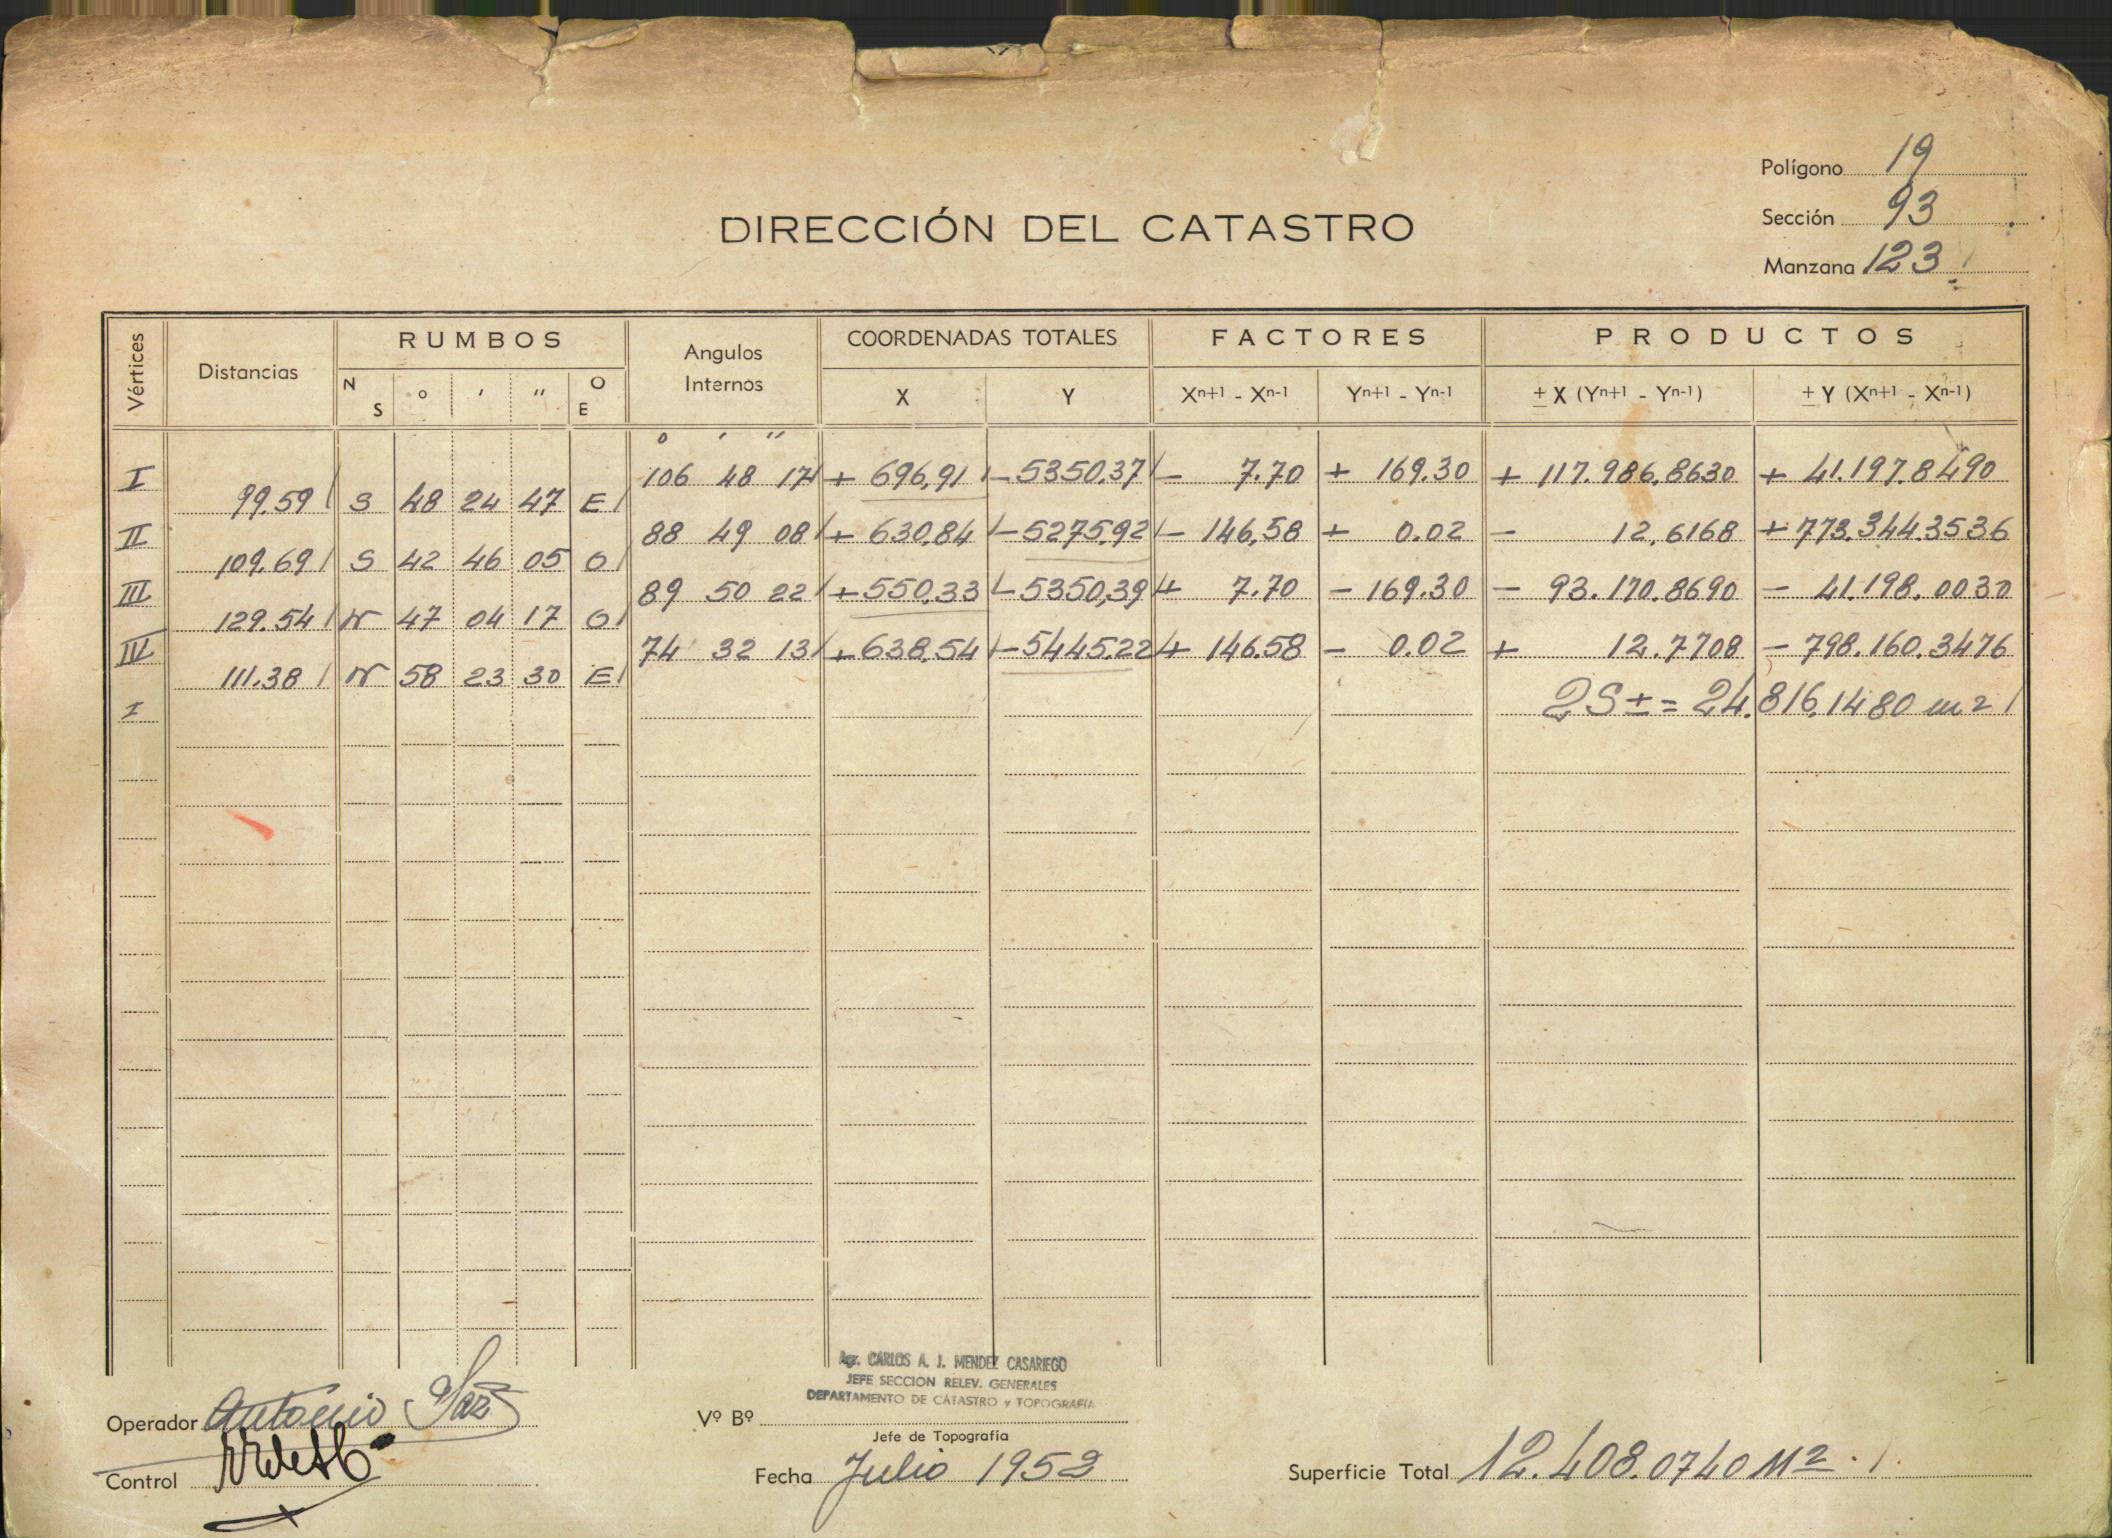 Polígono 19
Sección 93
Manzana 123
DIRECCIÓN DEL CATASTRO
Vértices Distancias RUMBOS Angulos Internos COORDENADAS TOTALES FACTORES PRODUCTOS
N S o ' " O E X Y Xn+1 - Xn-1 Yn+1 - Yn-1 ± X (Yn+1 - Yn-1) ± Y (Xn+1 - Xn-1)
o ' "
I 106 48 17 + 696,91 - 5350,37 - 7.70 + 169.30 + 117.986,8630 + 41.197.8490
99.59 S 48 24 47 E
II 88 49 08 + 630,84 - 5275,92 - 146,58 + 0.02 - 12,6168 + 773.344.3536
109.69 S 42 46 05 O
III 89 50 22 + 550,33 - 5350,39 + 7.70 - 169.30 - 93.170.8690 - 41.198.0030
129.54 N 47 04 17 O
IV 74 32 13 + 638,54 - 5445,22 + 146.58 - 0.02 + 12.7708 - 798.160.3476
111.38 N 58 23 30 E
I 2S± = 24.816,1480 m2
Agr. CARLOS A. J. MENDEZ CASARIEGO
JEFE SECCION RELEV. GENERALES
DEPARTAMENTO DE CATASTRO y TOPOGRAFIA
Operador Antonio
Vº Bº
Jefe de Topografía
Control
Fecha Julio 1953
Superficie Total 12.408.0740 M2